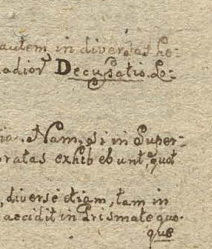 autem in diversas ho-
adior Decussatio. Lo-
Nam, si in super-
ratas exhib ebunt quot
diverse etiam, tam in
accidit in Prismate quo-
que